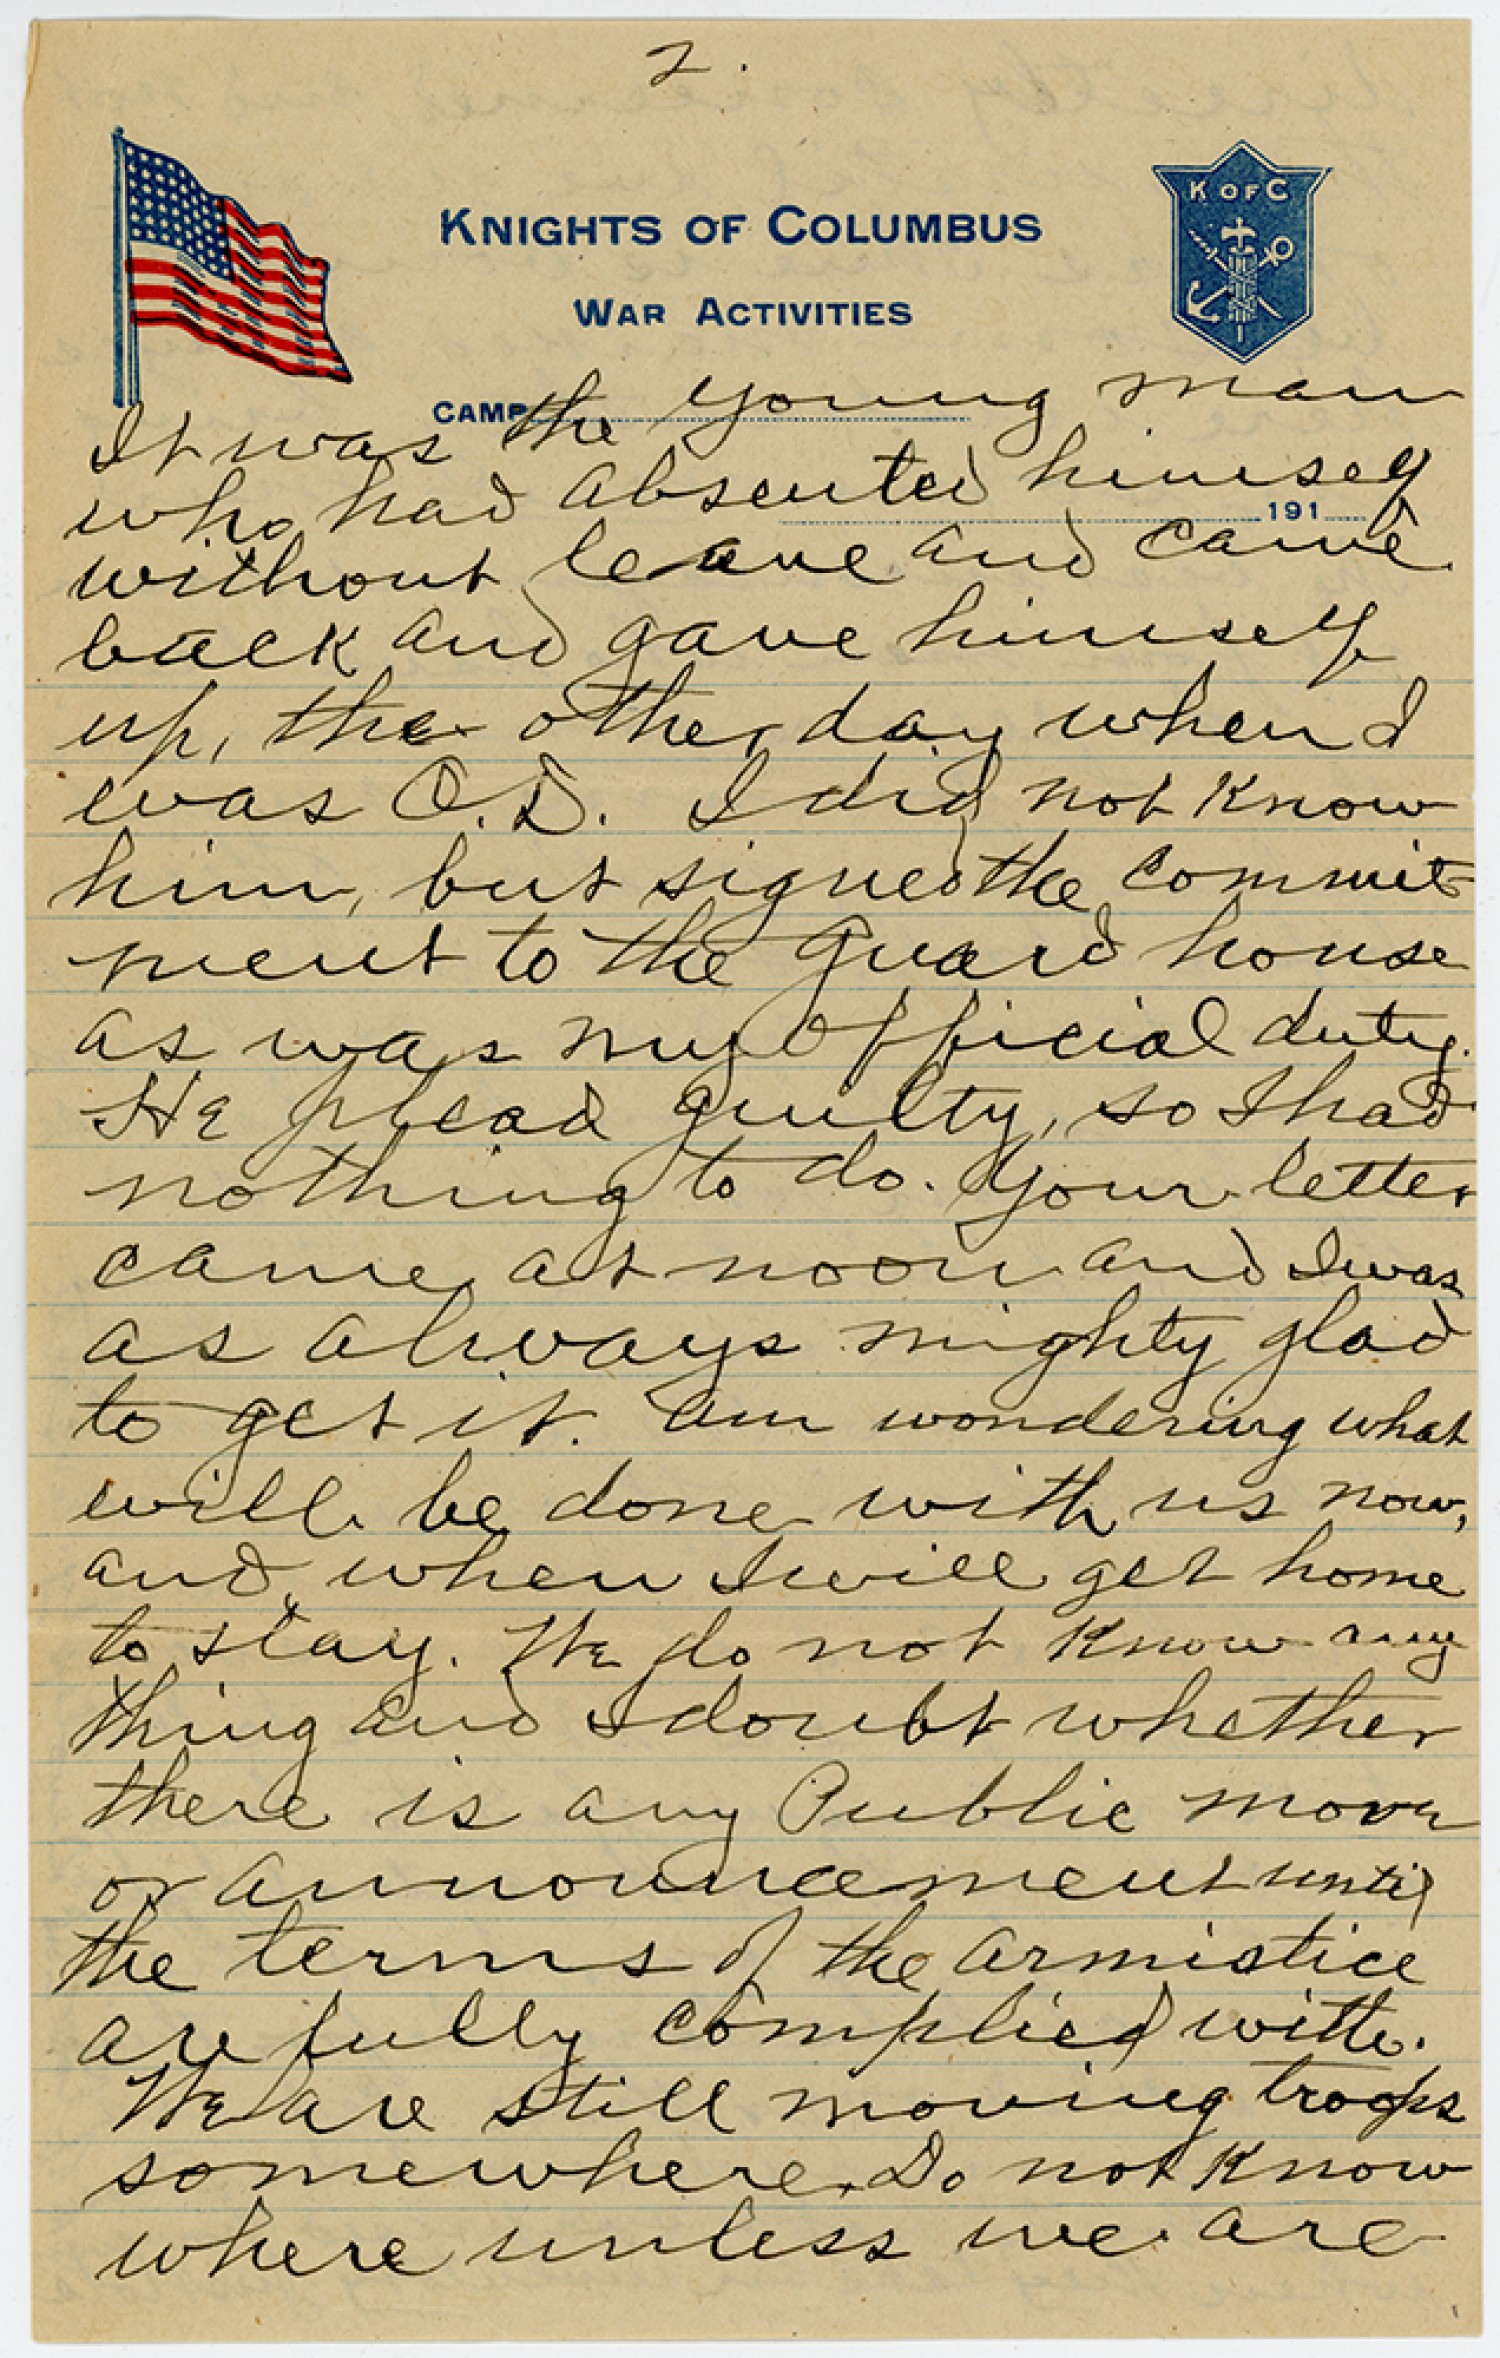 2.
K OF C
KNIGHTS OF COLUMBUS
WAR ACTIVITIES
CAMP
It was the young man
who had absented himself
191
without leave and came
back and gave himself
up, the other day when I
was O.D. I did not know
him, but signed the commit-
ment to the guard house
as was my official duty.
He plead guilty, so I had
nothing to do. Your letter
came at noon and I was
as always mighty glad
to get it. Am wondering what
will be done with us now,
and when I will get home
to stay. We do not know any
thing and I doubt whether
there is any Public move
or announcement until
the terms of the armistice
are fully complied with.
We are still moving troops
somewhere. Do not know
where unless we are